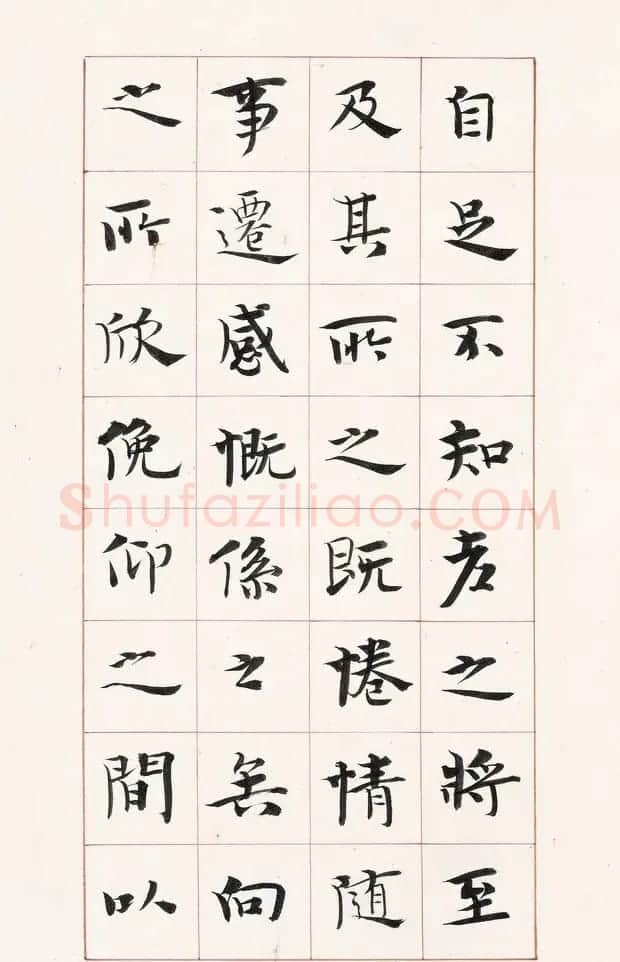 自足不知老之將至
及其所之既惓情随
事遷感慨係之矣向
之所欣俛仰之間以
Shufaziliao.COM